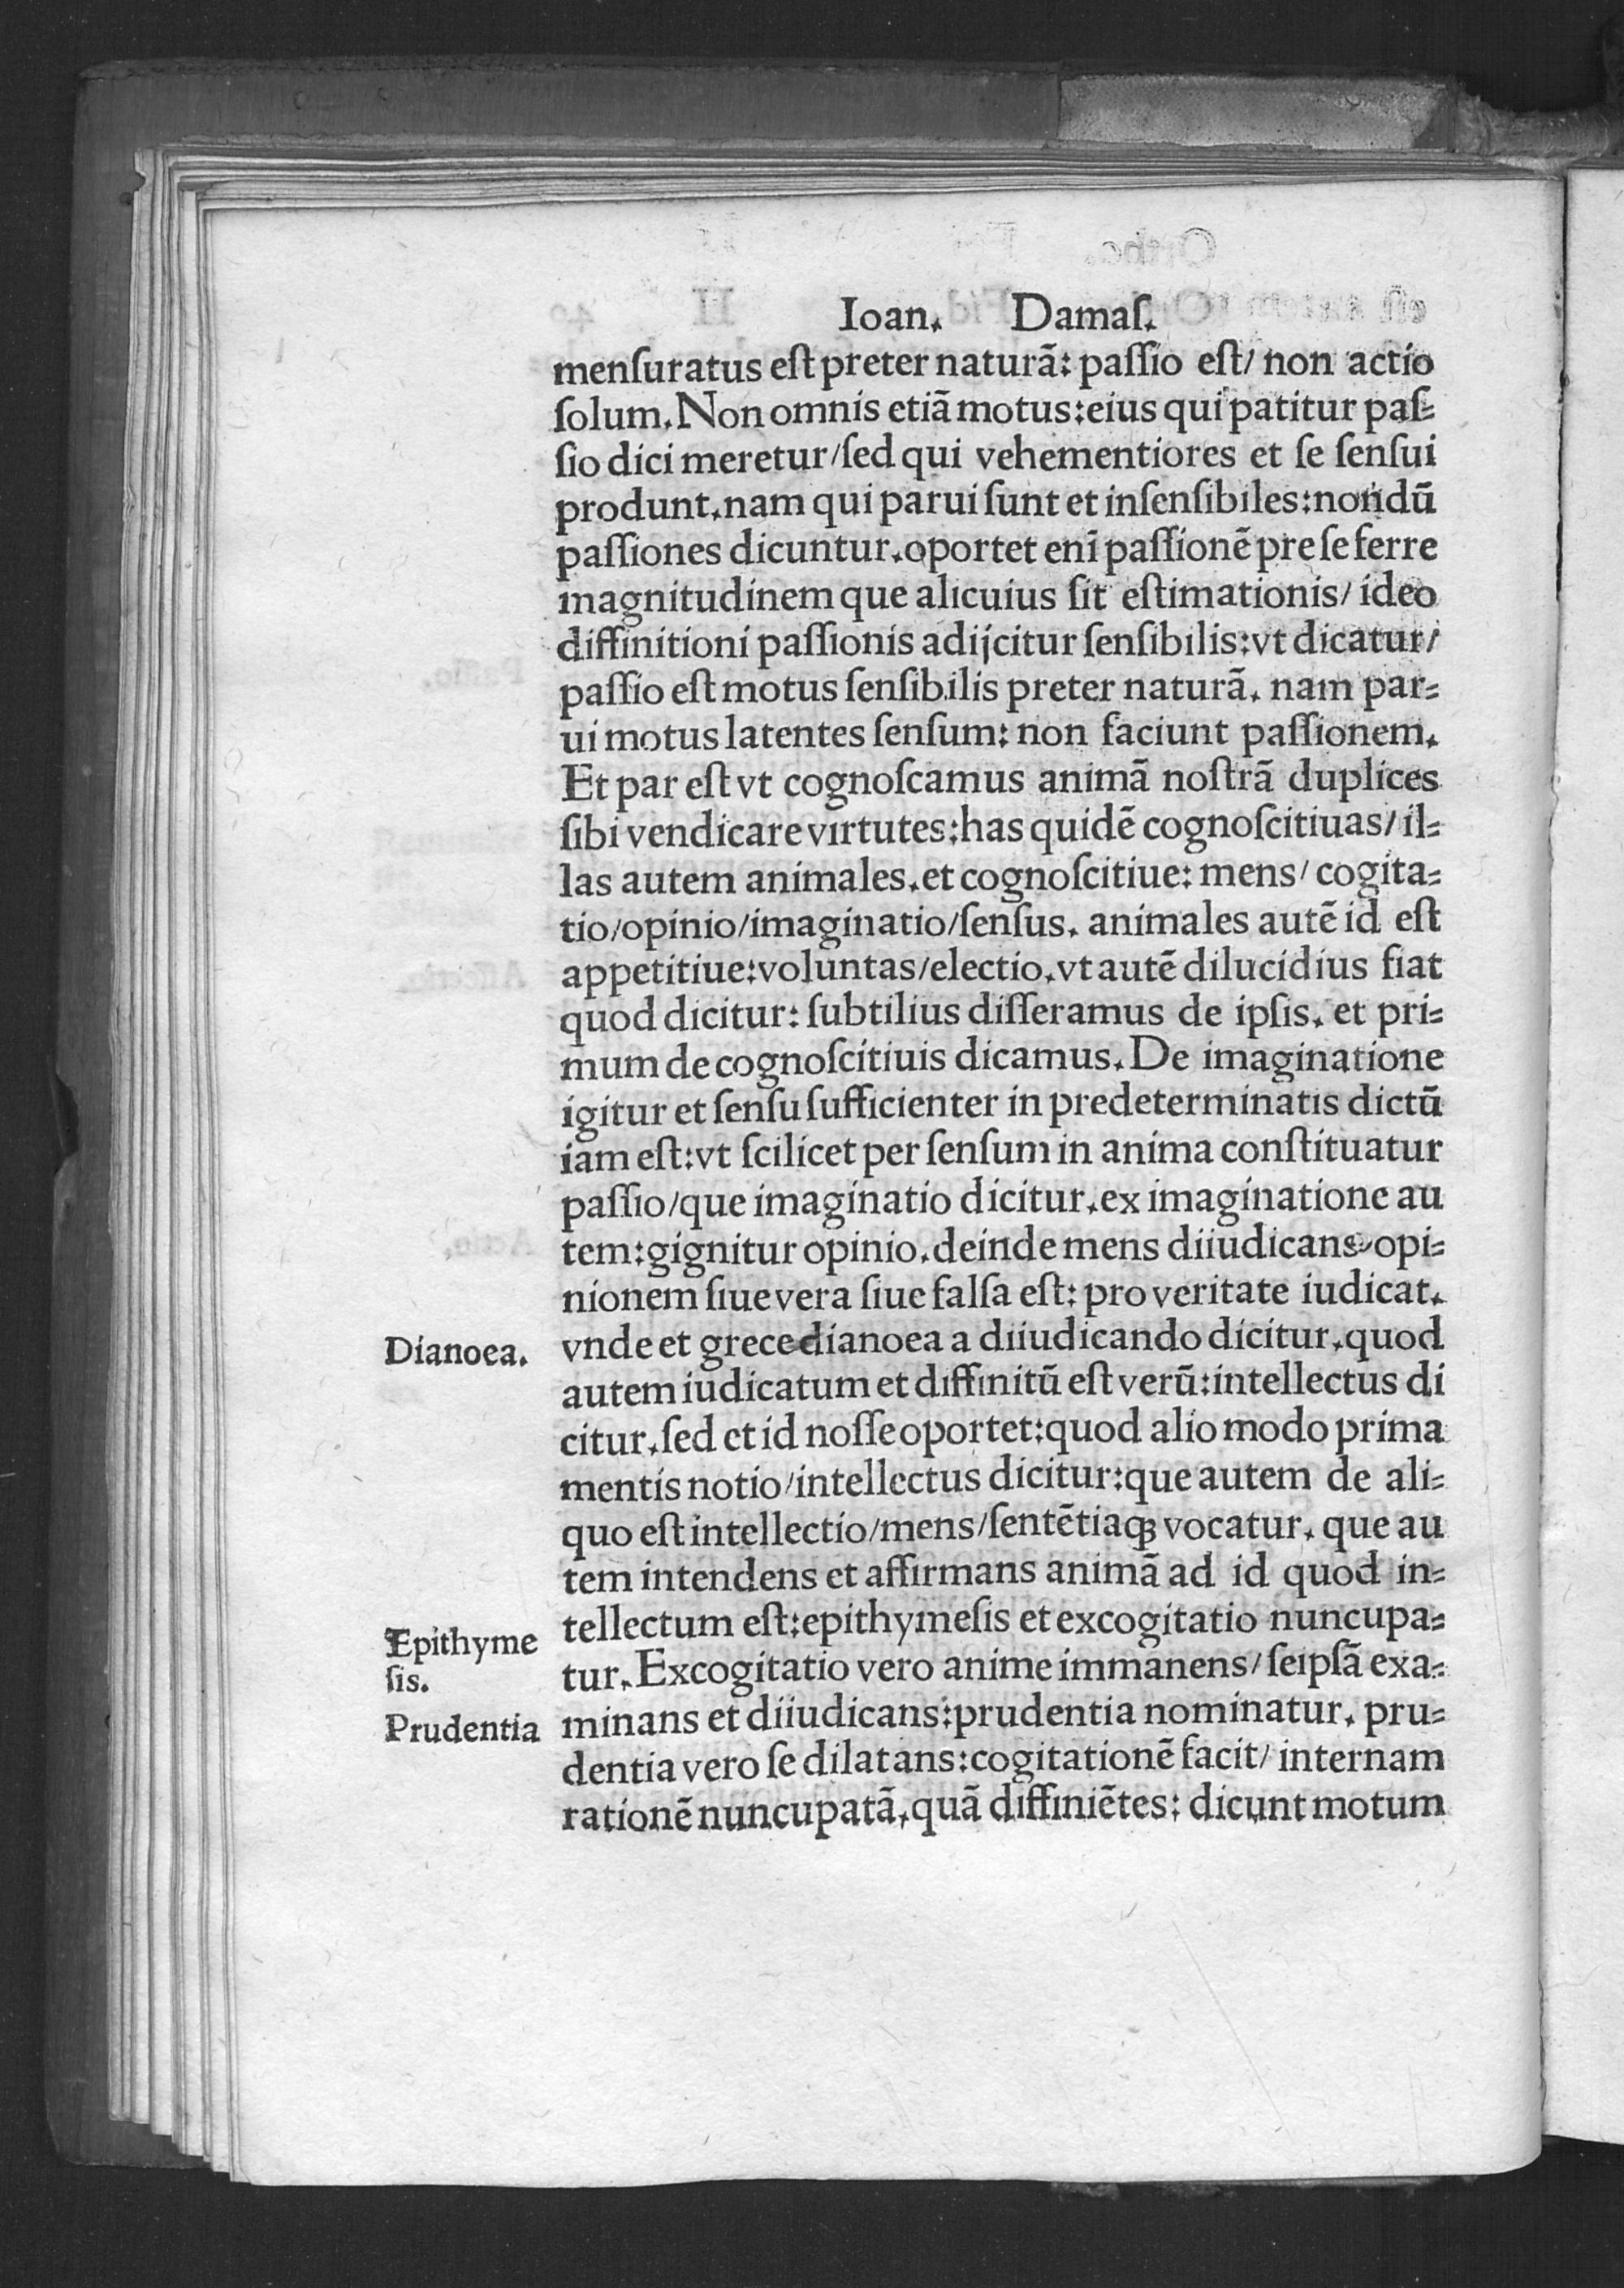 Ioan. Damaſ.
menſuratus eſt preter naturã: paſſio eſt/ non actio
ſolum. Non omnis etiã motus: eius qui patitur paſ⸗
ſio dici meretur/ ſed qui vehementiores et ſe ſenſui
produnt. nam qui parui ſunt et inſenſibiles: nondũ
paſſiones dicuntur. oportet enĩ paſſionẽ pre ſe ferre
magnitudinem que alicuius ſit eſtimationis/ ideo
diffinitioni paſſionis adijcitur ſenſibilis: vt dicatur/
paſſio eſt motus ſenſibilis preter naturã. nam par⸗
ui motus latentes ſenſum: non faciunt paſſionem.
Et par eſt vt cognoſcamus animã noſtrã duplices
ſibi vendicare virtutes: has quidẽ cognoſcitiuas/ il⸗
las autem animales. et cognoſcitiue: mens/ cogita⸗
tio/ opinio/ imaginatio/ ſenſus. animales autẽ id eſt
appetitiue: voluntas/ electio. vt autẽ dilucidius fiat
quod dicitur: ſubtilius differamus de ipſis. et pri⸗
mum de cognoſcitiuis dicamus. De imaginatione
igitur et ſenſu ſufficienter in predeterminatis dictũ
iam eſt: vt ſcilicet per ſenſum in anima conſtituatur
paſſio/ que imaginatio dicitur. ex imaginatione au
tem: gignitur opinio. deinde mens diiudicans opi⸗
nionem ſiue vera ſiue falſa eſt: pro veritate iudicat.
Dianoea.
vnde et grece dianoea a diiudicando dicitur. quod
autem iudicatum et diffinitũ eſt verũ: intellectus di
citur. ſed et id noſſe oportet: quod alio modo prima
mentis notio/ intellectus dicitur: que autem de ali⸗
quo eſt intellectio/ mens/ ſentẽtiaqꝫ vocatur. que au
tem intendens et affirmans animã ad id quod in⸗
tellectum eſt: epithymeſis et excogitatio nuncupa⸗
Epithyme
ſis.
tur. Excogitatio vero anime immanens/ ſeipſã exa⸗
Prudentia
minans et diiudicans: prudentia nominatur. pru⸗
dentia vero ſe dilatans: cogitationẽ facit/ internam
rationẽ nuncupatã. quã diffiniẽtes: dicunt motum